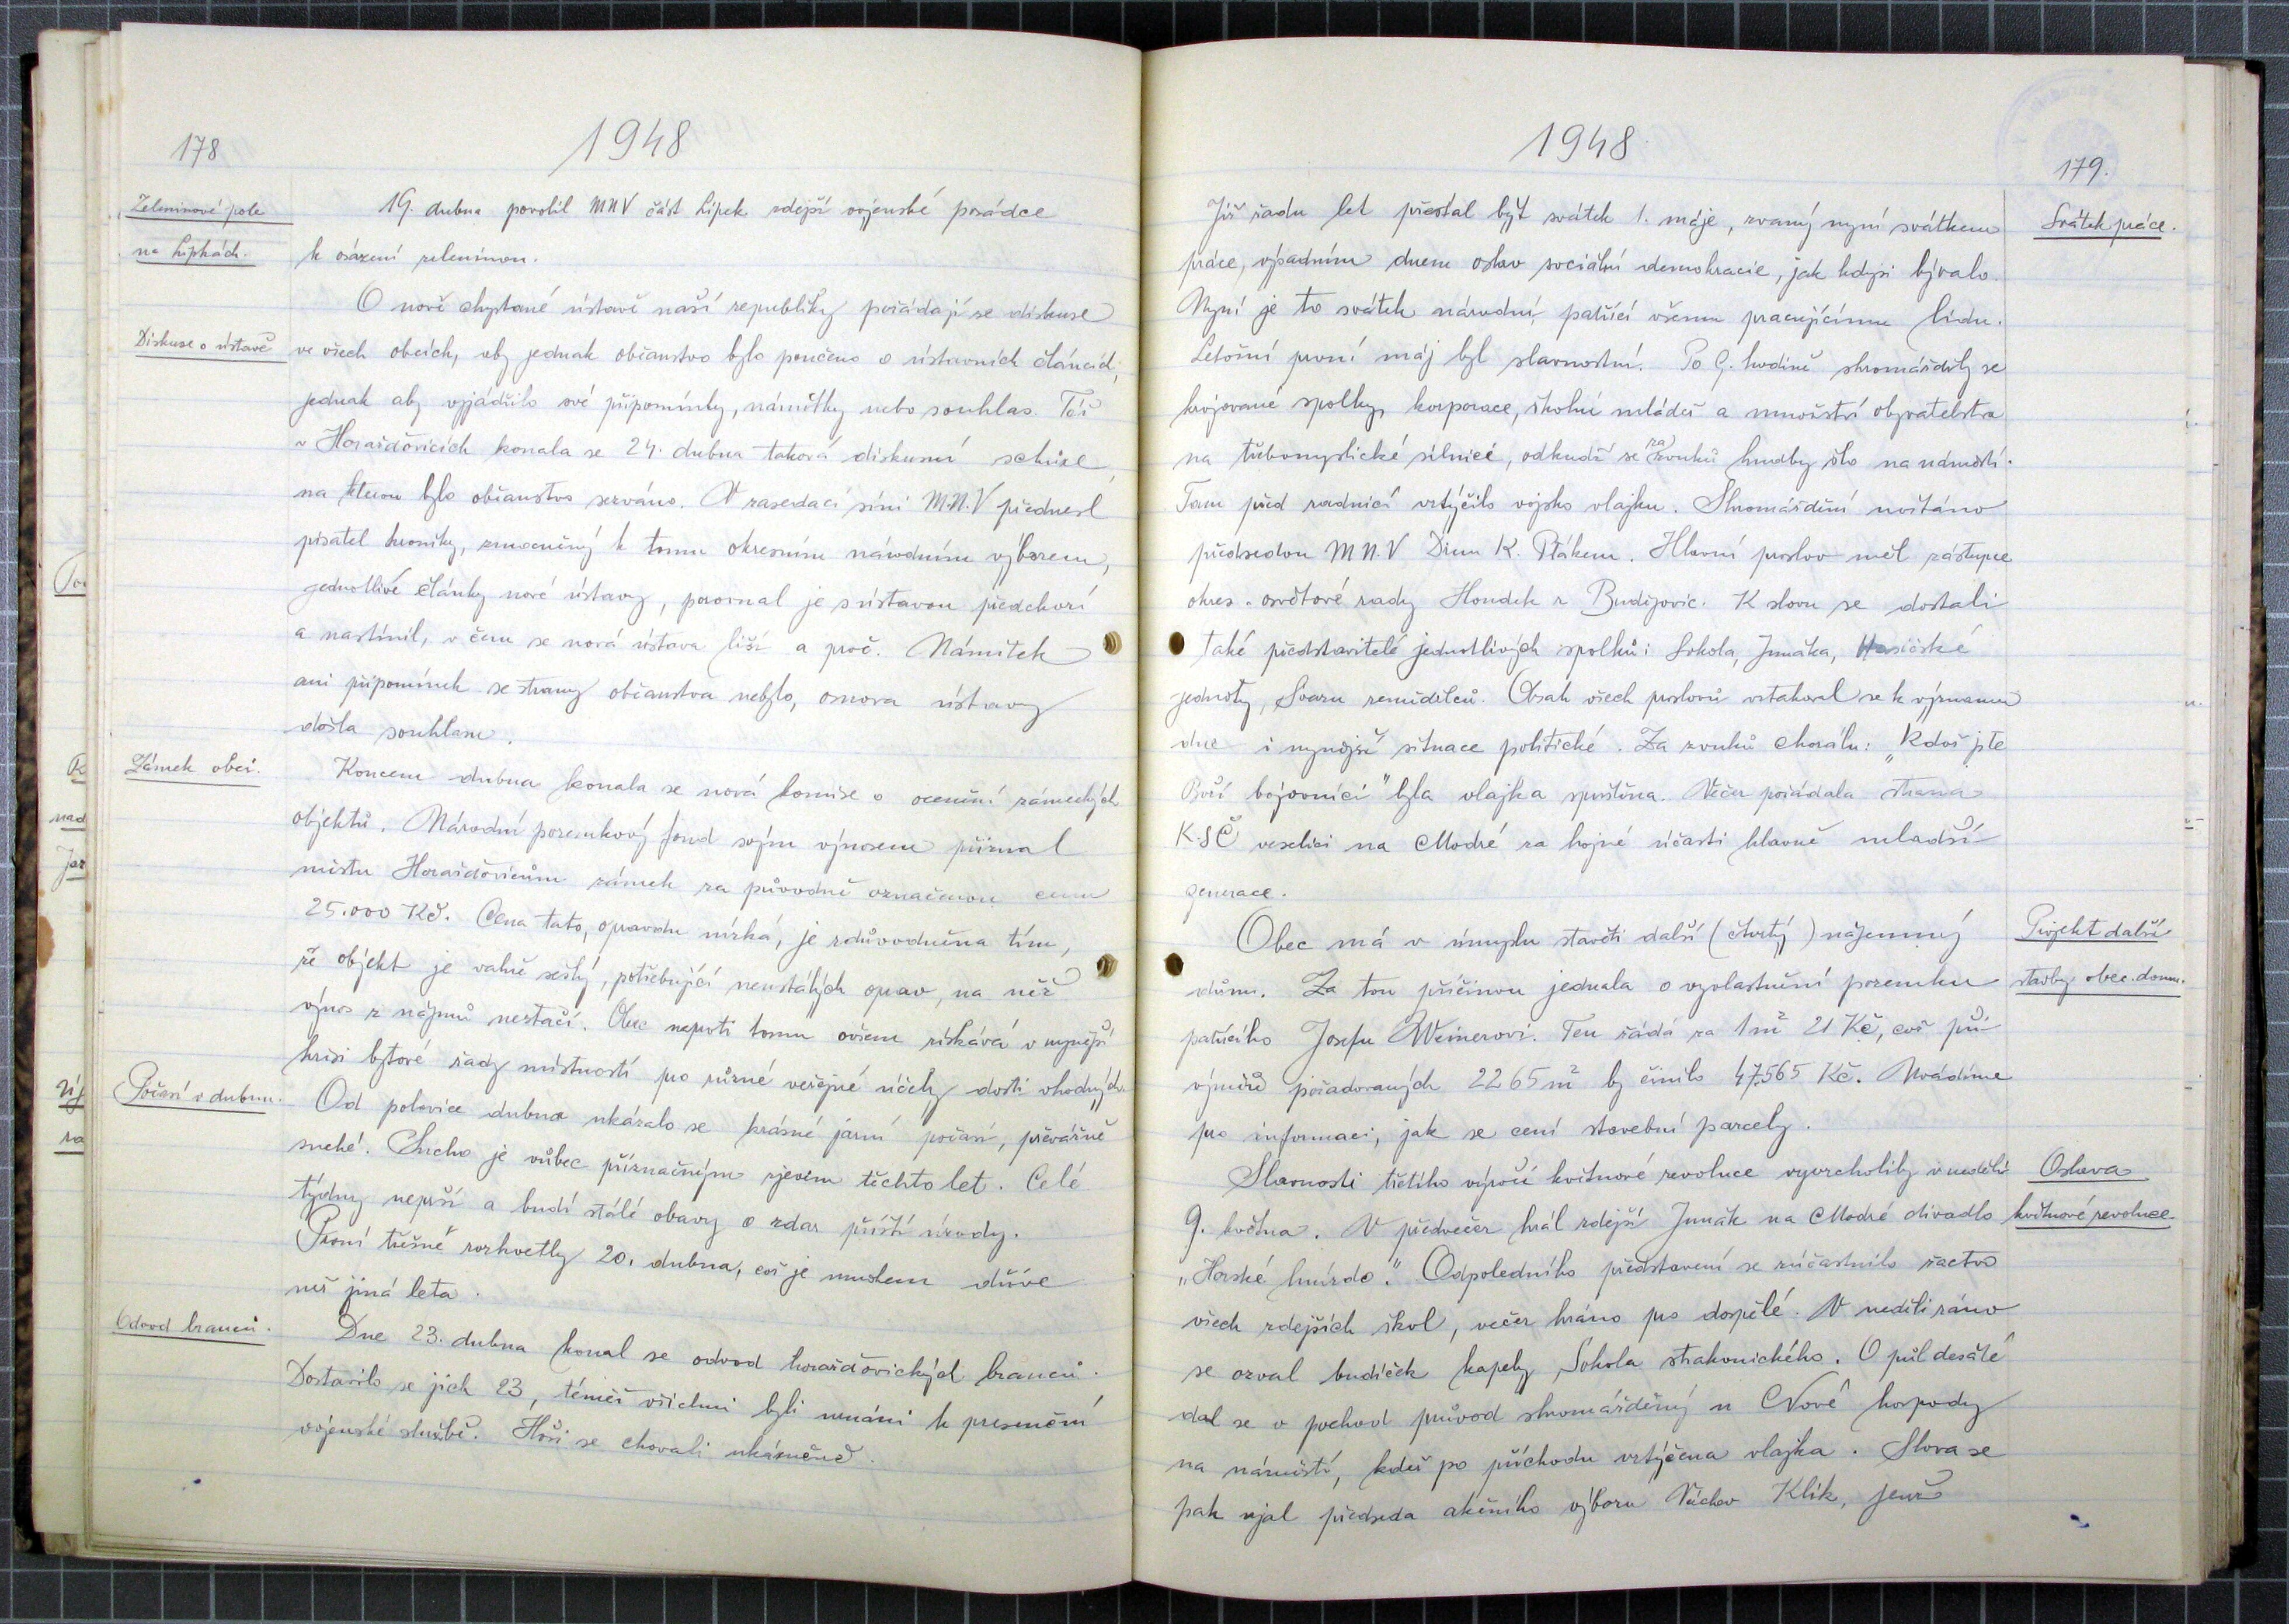 178
1948
Zeleninové pole
na Lipkách.
19. dubna povolil MNV část Lipek zdejší vojenské posádce
k osázení zeleninou.
Diskuse o ústavě
O nově chystané ústavě naší republiky pořádají se diskuse
ve všech obcích, aby jednak občanstvo bylo poučeno o ústavních článcích,
jednak aby vyjádřilo své připomínky, námitky nebo souhlas. Též
v Horažďovicích konala se 24. dubna taková diskusní schůze,
na kterou bylo občanstvo zerváno. V zasedací síni M.N.V přednesl
pisatel kroniky, zmocněný k tomu okresním národním výborem,
jednotlivé články nové ústavy, porovnal je s ústavou předchozí
a nastínil, v čem se nová ústava liší a proč. Námitek
ani připomínek se strany občanstva nebylo, osnova ústavy
došla souhlasu.
Zámek obci.
Koncem dubna konala se nová komise o ocenění zámeckých
objektů. Národní pozemkový fond svým výnosem přiznal
městu Horažďovicům zámek za původně označenou cenu
25.000 Kč. Cena tato, opravdu nízká, je zdůvodněna tím,
že objekt je valně sešlý, potřebující neustálých oprav, na něž
výnos z nájmů nestačí. Obec naproti tomu ovšem získává v nynější
krisi bytové řady místností pro různé veřejné účely dosti vhodných.
Počasí v dubnu.
Od polovice dubna ukázalo se krásné jarní počasí, převážně
suché. Sucho je vůbec příznačným zjevem těchto let. Celé
týdny neprší a budí stálé obavy o zdar příští úrody.
První třešně rozkvetly 20. dubna, což je mnohem dříve
než jiná leta.
Odvod branců.
Dne 23. dubna konal se odvod horažďovických branců.
Dostavilo se jich 23, téměř všichni byli uznáni k presenční
vojenské službě. Hoši se chovali ukázněně.
1948
179.
Svátek práce.
Již řadu let přestal být svátek 1. máje, zvaný nyní svátkem
práce, výpadním dnem oslav sociální demokracie, jak kdysi bývalo.
Nyní je to svátek národní, patřící všemu pracujícímu lidu.
Letošní první máj byl slavnostní. Po 9. hodině shromáždily se
krojované spolky, korporace, školní mládež a množství obyvatelstva
na třebomyslické silnici, odkudž se za zvuků hudby šlo na náměstí.
Tam před radnicí vztýčilo vojsko vlajku. Shromáždění uvítáno
předsedou MN.V Drem K. Ptákem. Hlavní proslov měl zástupce
okres. osvětové rady Houdek z Budějovic. K slovu se dostali
také představitelé jednotlivých spolků: Sokola, Junáka, Hasičské
jednoty, Svazu zemědělců. Obsah všech proslovů vztahoval se k významu
dne i nynější situace politické. Za zvuků chorálu: "Kdož jste
Boží bojovníci" byla vlajka spuštěna. Večer pořádala strana
K.SČ veselici na Modré za hojné účasti hlavně mladší
generace.
Projekt další
stavby obec. domu.
Obec má v úmyslu stavěti další (čtvrtý) nájemný
dům. Za tou příčinou jednala o vyvlastnění pozemku
patřícího Josefu Weinerovi. Ten žádá za 1 m² 21 Kč, což při
výměře požadovaných 2265 m² by činilo 47.565 Kč. Uvádíme
pro informaci, jak se cení stavební parcely.
Oslava
květnové revoluce
Slavnosti třetího výročí květnové revoluce vyvrcholily v neděli
9. května. V předvečer hrál zdejší Junák na Modré divadlo
"Horské hnízdo." Odpoledního představení se zúčastnilo žactvo
všech zdejších škol, večer hráno pro dospělé. V neděli ráno
se ozval budíček kapely Sokola strakonického. O půl desáté
dal se v pochod průvod shromážděný u Nové hospody
na náměstí, kdež po příchodu vztýčena vlajka. Slova se
pak ujal předseda akčního výboru Václav Klik, jenž